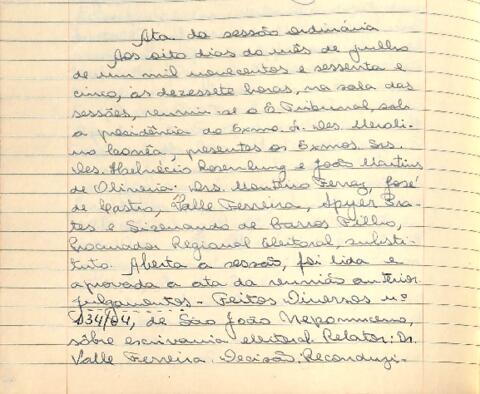 Ata da sessão ordinária
Aos oito dias do mês de julho
de um mil novecentos e sessenta e
cinco, às dezessete horas, na sala das
sessões, reuniu-se o E. Tribunal, sob
a presidência do Exmo. Sr. Des. Meroli-
no Corrêa, presentes os Exmos. Srs.
Des. Helvécio Rosenburg e João Martins
de Oliveira. Drs. Monthro Ferraz, José
de Castro, Valle Ferreira, Apyer Pra-
tes e Sizenando de Barros Filho,
Procurador Regional Eleitoral, substi-
tuto. Aberta a sessão, foi lida e
aprovada a ata da reunião anterior.
Julgamentos - Feitos Diversos nº
134/64, de São João Nepomuceno,
sôbre escrivania eleitoral. Relator: Dr.
Valle Ferreira. Decisão: Reconduzi-